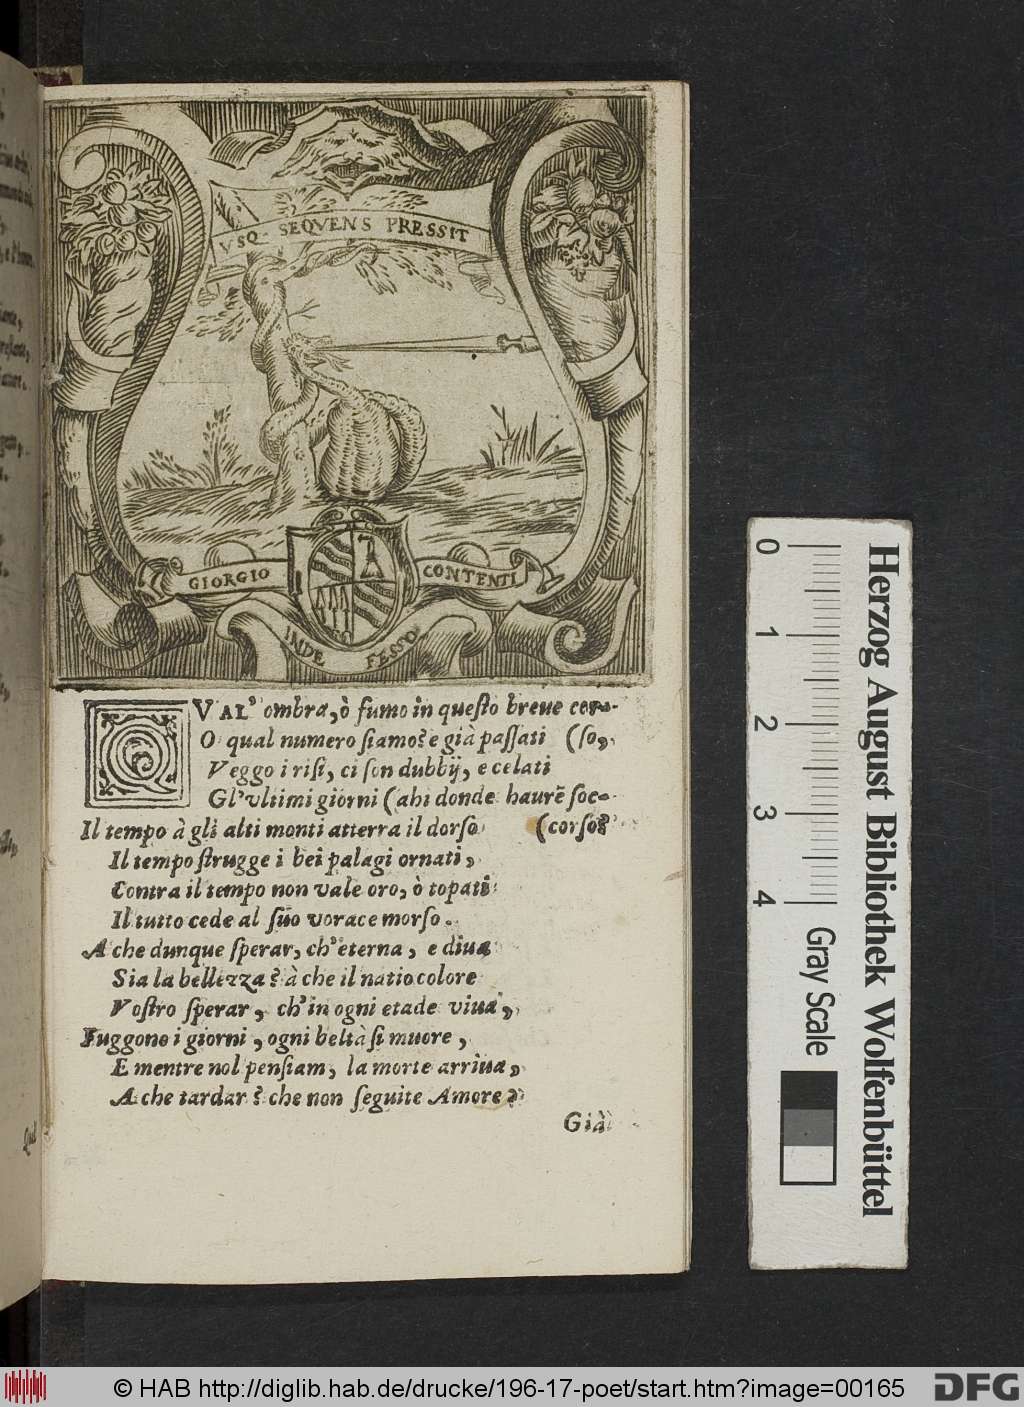 VSQ. SEQVENS PRESSIT
GIORGIO
CONTENTI
INDE
FESSO
QVAL' ombra, ò fumo in questo breue cor-
O qual numero siamo? e già passati (so,
Veggo i risi, ci son dubbij, e celati
Gl'vltimi giorni (ahi donde haurẽ soc-
Il tempo à gli alti monti atterra il dorso (corso?
Il tempo strugge i bei palagi ornati,
Contra il tempo non vale oro, ò topati:
Il tutto cede al suo vorace morso.
A che dunque sperar, ch'eterna, e diua
Sia la bellezza? à che il natio colore
Vostro sperar, ch'in ogni etade viua,
Fuggono i giorni, ogni beltà si muore,
E mentre nol pensiam, la morte arriua,
A che tardar? che non seguite Amore?
Già
Herzog August Bibliothek Wolfenbüttel
0 1 2 3 4
Gray Scale
© HAB http://diglib.hab.de/drucke/196-17-poet/start.htm?image=00165
DFG